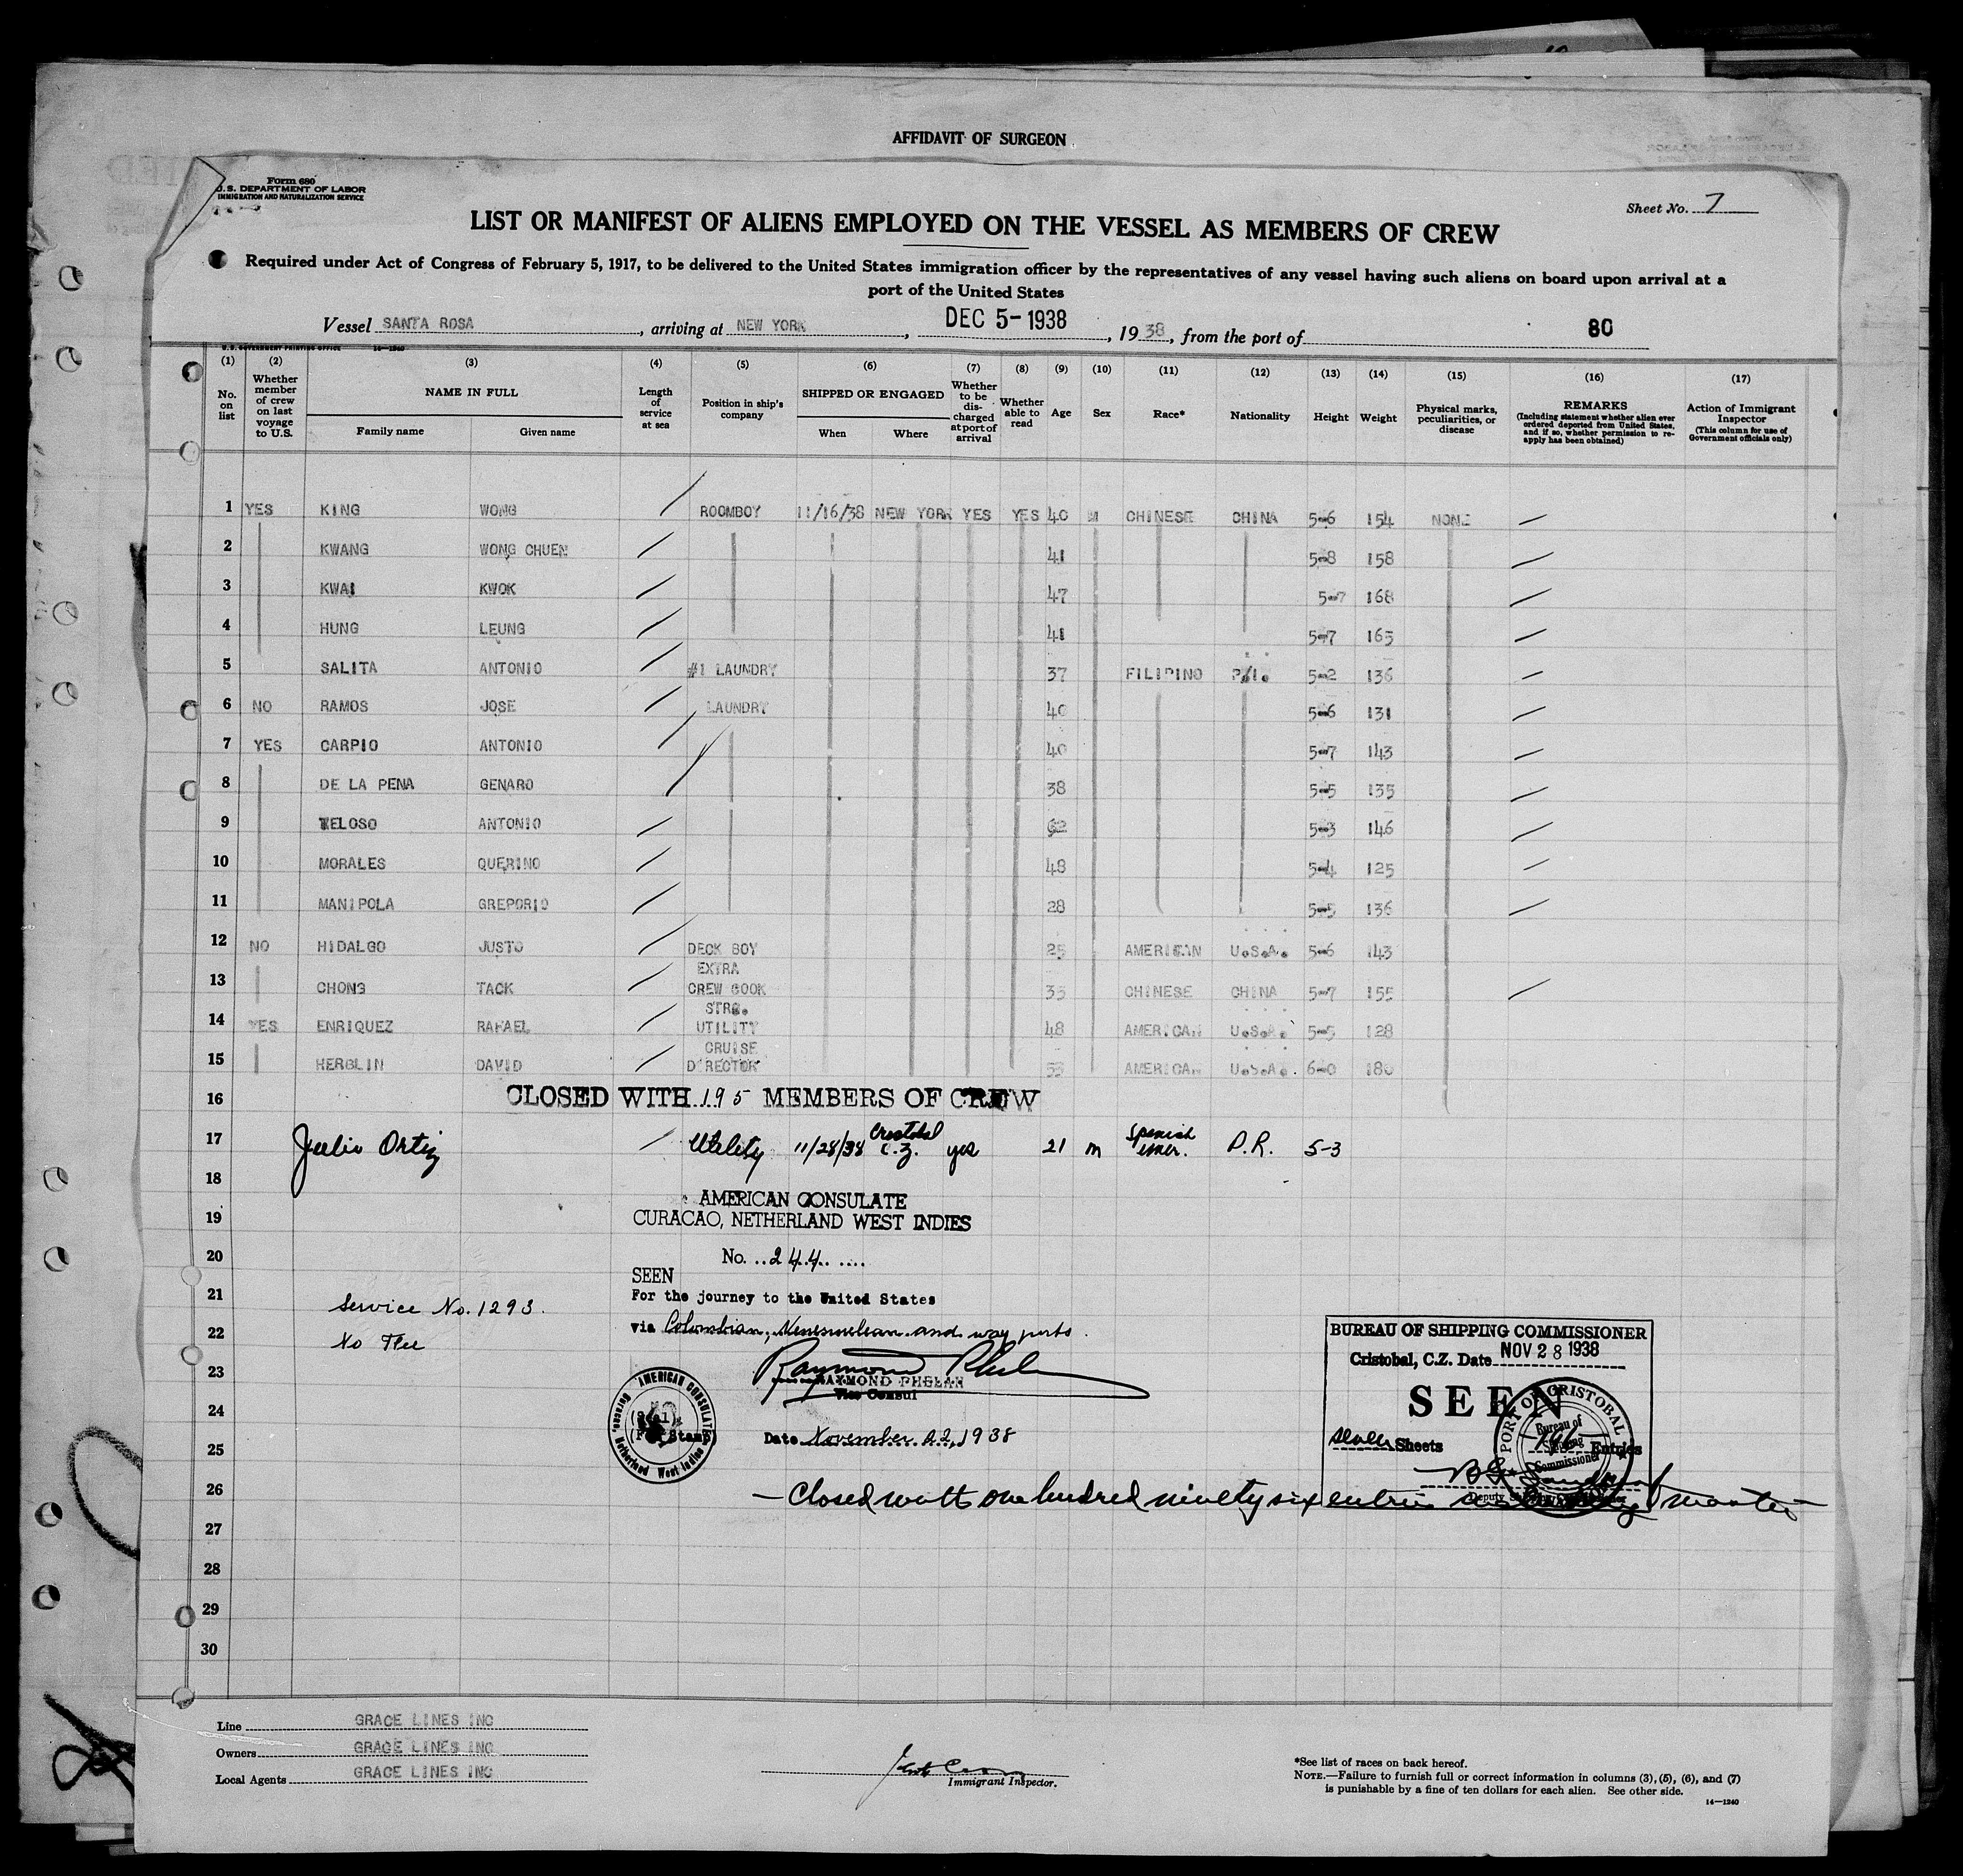 AFFIDAVIT OF SURGEON
Form 680
U.S. DEPARTMENT OF LABOR
IMMIGRATION AND NATURALIZATION SERVICE
Sheet No. 7
LIST OR MANIFEST OF ALIENS EMPLOYED ON THE VESSEL AS MEMBERS OF CREW
Required under Act of Congress of February 5, 1917, to be delivered to the United States immigration officer by the representatives of any vessel having such aliens on board upon arrival at a
port of the United States
Vessel SANTA ROSA, arriving at NEW YORK, DEC 5-1938, 1938, from the port of 80
U.S. GOVERNMENT PRINTING OFFICE 14—1240
(1) (2) (3) (4) (5) (6) (7) (8) (9) (10) (11) (12) (13) (14) (15) (16) (17)
No. on list
Whether member of crew on last voyage to U.S.
NAME IN FULL
Family name Given name
Length of service at sea
Position in ship's company
SHIPPED OR ENGAGED
When Where
Whether to be discharged at port of arrival
Whether able to read
Age
Sex
Race*
Nationality
Height
Weight
Physical marks, peculiarities, or disease
REMARKS
(Including statement whether alien ever ordered deported from United States, and if so, whether permission to reapply has been obtained)
Action of Immigrant Inspector
(This column for use of Government officials only)
1 YES KING WONG ROOMBOY 11/16/38 NEW YORK YES YES 40 M CHINESE CHINA 5-6 154 NONE
2 KWANG WONG CHUEN 41 5-8 158
3 KWAI KWOK 47 5-7 168
4 HUNG LEUNG 41 5-7 165
5 SALITA ANTONIO #1 LAUNDRY 37 FILIPINO P.I. 5-2 136
6 NO RAMOS JOSE LAUNDRY 40 5-6 131
7 YES CARPIO ANTONIO 40 5-7 143
8 DE LA PENA GENARO 38 5-5 135
9 ANTONIO 62 5-3 146
10 MORALES QUERINO 48 5-4 125
11 MANIPOLA GREPORIO 28 5-5 136
12 NO HIDALGO JUSTO DECK BOY 25 AMERICAN U.S.A. 5-6 143
13 CHONG TACK EXTRA CREW COOK 35 CHINESE CHINA 5-7 155
14 YES ENRIQUEZ RAFAEL STRG. UTILITY 48 AMERICAN U.S.A. 5-5 128
15 HERBLIN DAVID CRUISE DIRECTOR AMERICAN U.S.A. 6-0 180
16 CLOSED WITH 195 MEMBERS OF CREW
17 Julio Ortiz Utility 11/28/38 Cristobal C.Z. yes 21 m Spanish Amer. P.R. 5-3
18
AMERICAN CONSULATE
19 CURACAO, NETHERLAND WEST INDIES
20 No. 244
SEEN
21 For the journey to the United States
Service No. 1293.
22 via Colombian, Venezuelan and way ports.
No Fee
Raymond Phelan
23 RAYMOND PHELAN
Vice Consul
24
AMERICAN CONSULATE
Curacao, Netherland West Indies
(Seal)
(Fee Stamp)
25 Date November 22, 1938
BUREAU OF SHIPPING COMMISSIONER
Cristobal, C.Z. Date NOV 28 1938
SEEN
seven Sheets 196 Entries
PORT OF CRISTOBAL
Bureau of Shipping Commissioner
Deputy
26 — Closed with one hundred ninety six entries master —
27
28
29
30
Line GRACE LINES INC
Owners GRACE LINES INC
Local Agents GRACE LINES INC
Immigrant Inspector.
*See list of races on back hereof.
NOTE.—Failure to furnish full or correct information in columns (3), (5), (6), and (7)
is punishable by a fine of ten dollars for each alien. See other side.
14—1240